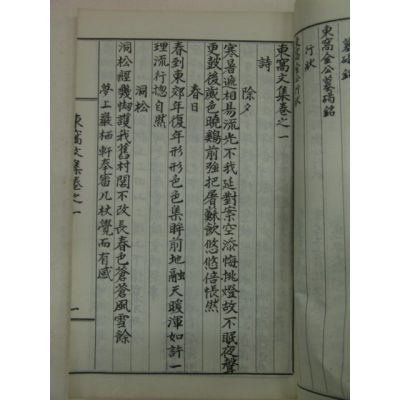 墓碣銘
東窩金公墓碣銘
行狀
東窩金公行狀
東窩文集卷之一
詩
除夕
寒暑遞相易流光不我延對案空添悔挑燈故不眠夜聲
更鼓後歲色曉鷄前強把屠蘇飮悠悠倍悵然
春日
春到東郊年復年形形色色集眸前地融天暖渾如許一
理流行摠自然
洞松
洞松經幾劫護我舊村閭不改長春色蒼蒼風雪餘
夢上巖栖軒奉審几杖覺而有感
東窩文集卷之一
一